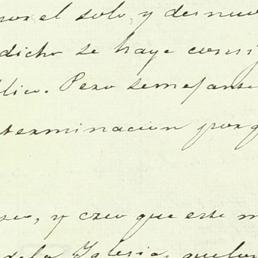 por el solo, y des nues
dicho se haya consi
lico. Pero semejante
terminacion porq
eo, y creo que este m
de la Iglesia, quelo